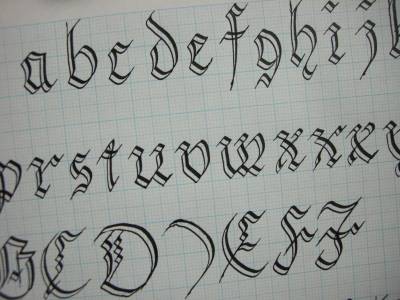 a b c d e f g h i j
p r s t u v w x x x y
B C D ) E F F